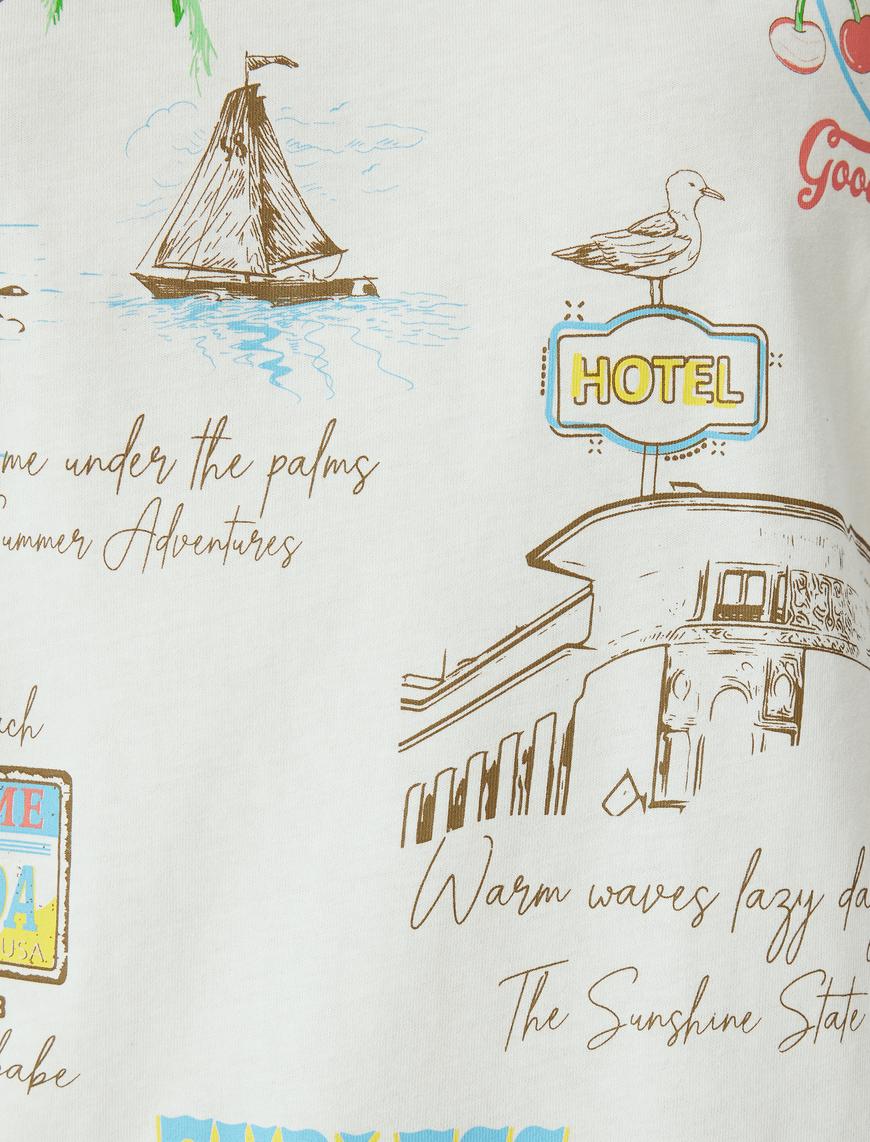 98
Goo
HOTEL
me under the palms
Summer Adventures
ach
ME
DA
USA
Warm waves lazy da
The Sunshine State
babe